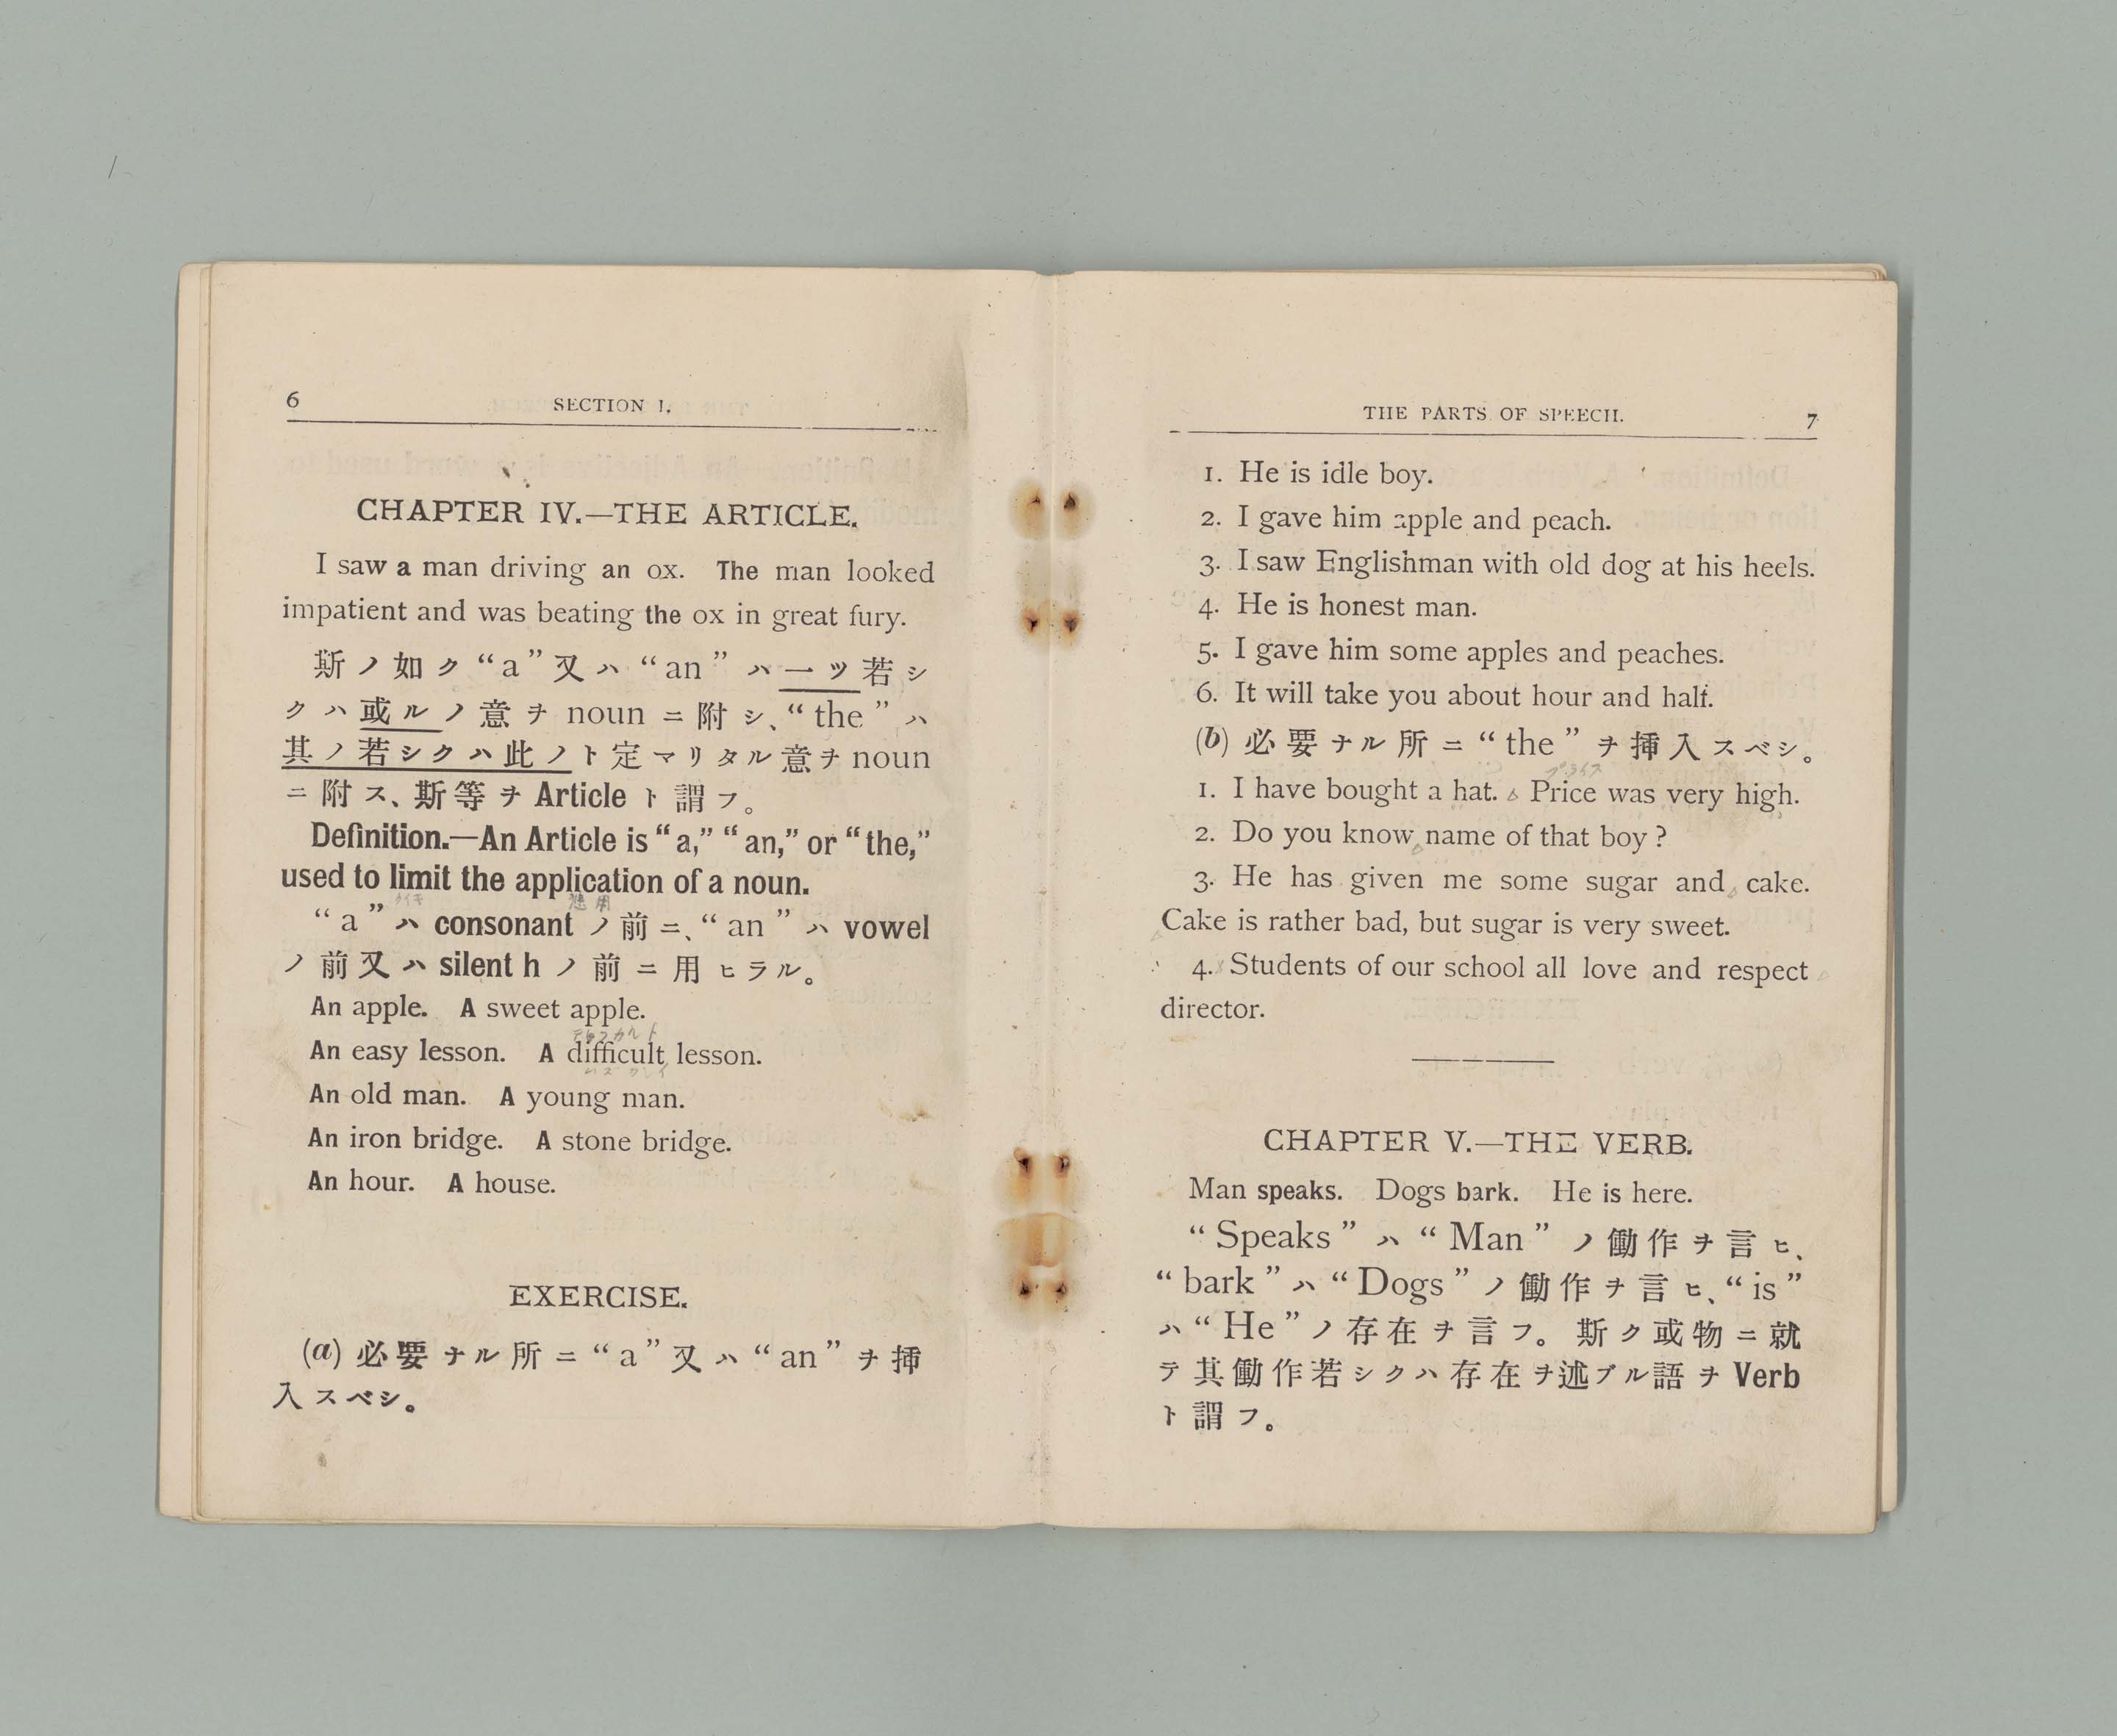 6
SECTION I.
CHAPTER IV.—THE ARTICLE.
I saw a man driving an ox. The man looked
impatient and was beating the ox in great fury.
斯ノ如ク“a”又ハ“an”ハ一ツ若シ
クハ或ルノ意ヲ noun ニ附シ、“the”ハ
其ノ若シクハ此ノト定マリタル意ヲ noun
ニ附ス、斯等ヲ Article ト謂フ。
Definition.—An Article is “a,” “an,” or “the,”
used to limit the application of a noun.
適用
“a”ハ consonant ノ前ニ、“an”ハ vowel
ノ前又ハ silent h ノ前ニ用ヒラル。
An apple. A sweet apple.
An easy lesson. A difficult lesson.
An old man. A young man.
An iron bridge. A stone bridge.
An hour. A house.
EXERCISE.
(a) 必要ナル所ニ“a”又ハ“an”ヲ揷
入スベシ。
THE PARTS OF SPEECH.
7
1. He is idle boy.
2. I gave him apple and peach.
3. I saw Englishman with old dog at his heels.
4. He is honest man.
5. I gave him some apples and peaches.
6. It will take you about hour and half.
(b) 必要ナル所ニ“the”ヲ揷入スベシ。
プライス
1. I have bought a hat. Price was very high.
2. Do you know name of that boy?
3. He has given me some sugar and cake.
Cake is rather bad, but sugar is very sweet.
4. Students of our school all love and respect
director.
CHAPTER V.—THE VERB.
Man speaks. Dogs bark. He is here.
“Speaks”ハ“Man”ノ働作ヲ言ヒ、
“bark”ハ“Dogs”ノ働作ヲ言ヒ、“is”
ハ“He”ノ存在ヲ言フ。斯ク或物ニ就
テ其働作若シクハ存在ヲ述ブル語ヲ Verb
ト謂フ。